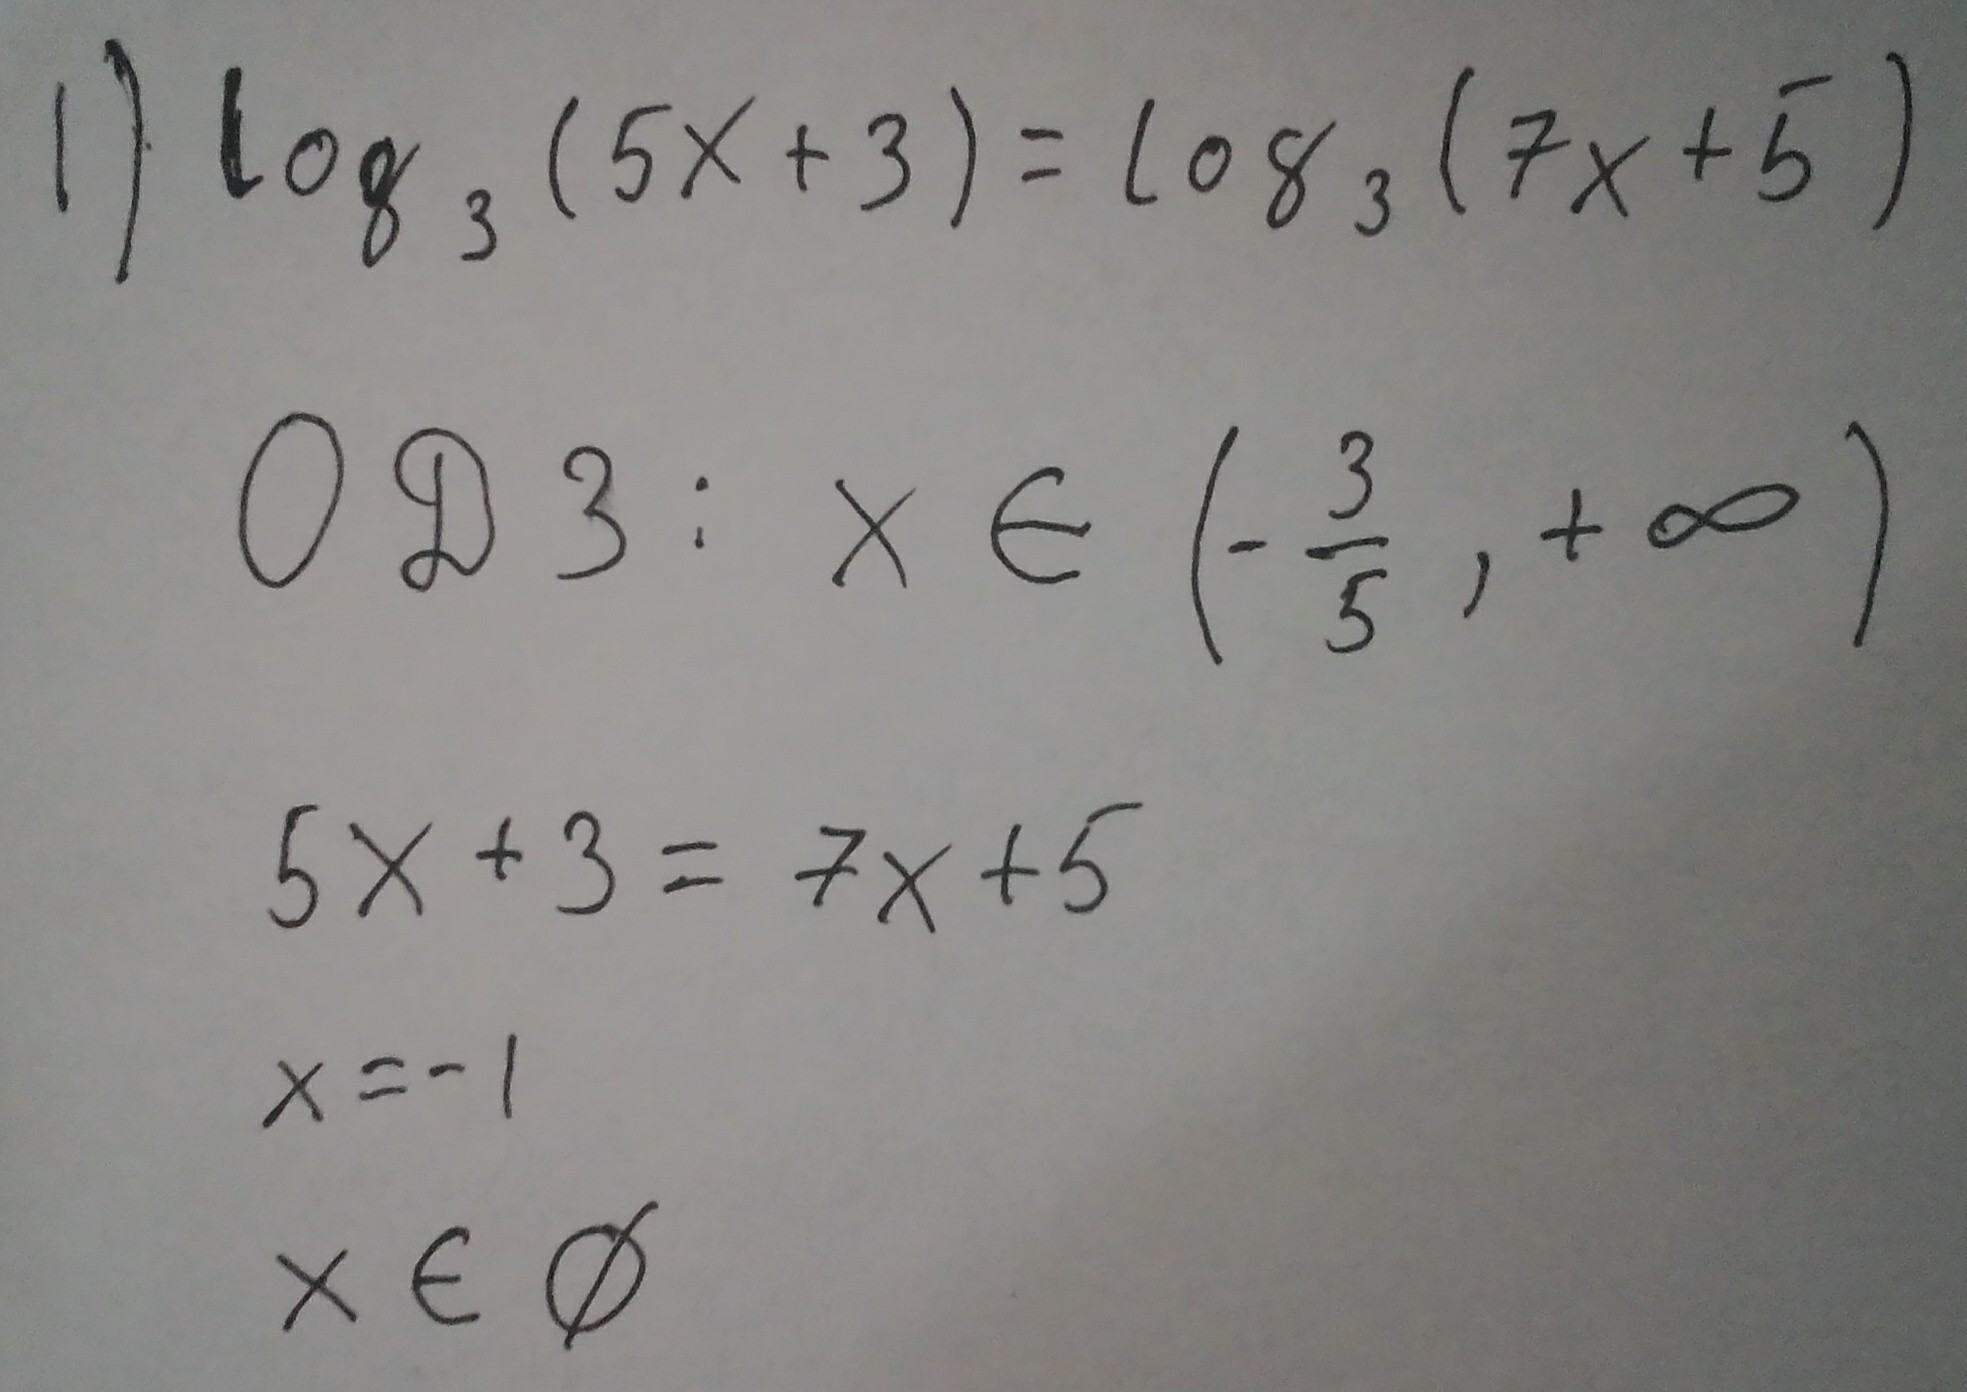 1) log₃(5x+3)=log₃(7x+5)
ОДЗ: x∈(-3/5,+∞)
5x+3=7x+5
x=-1
x∈∅